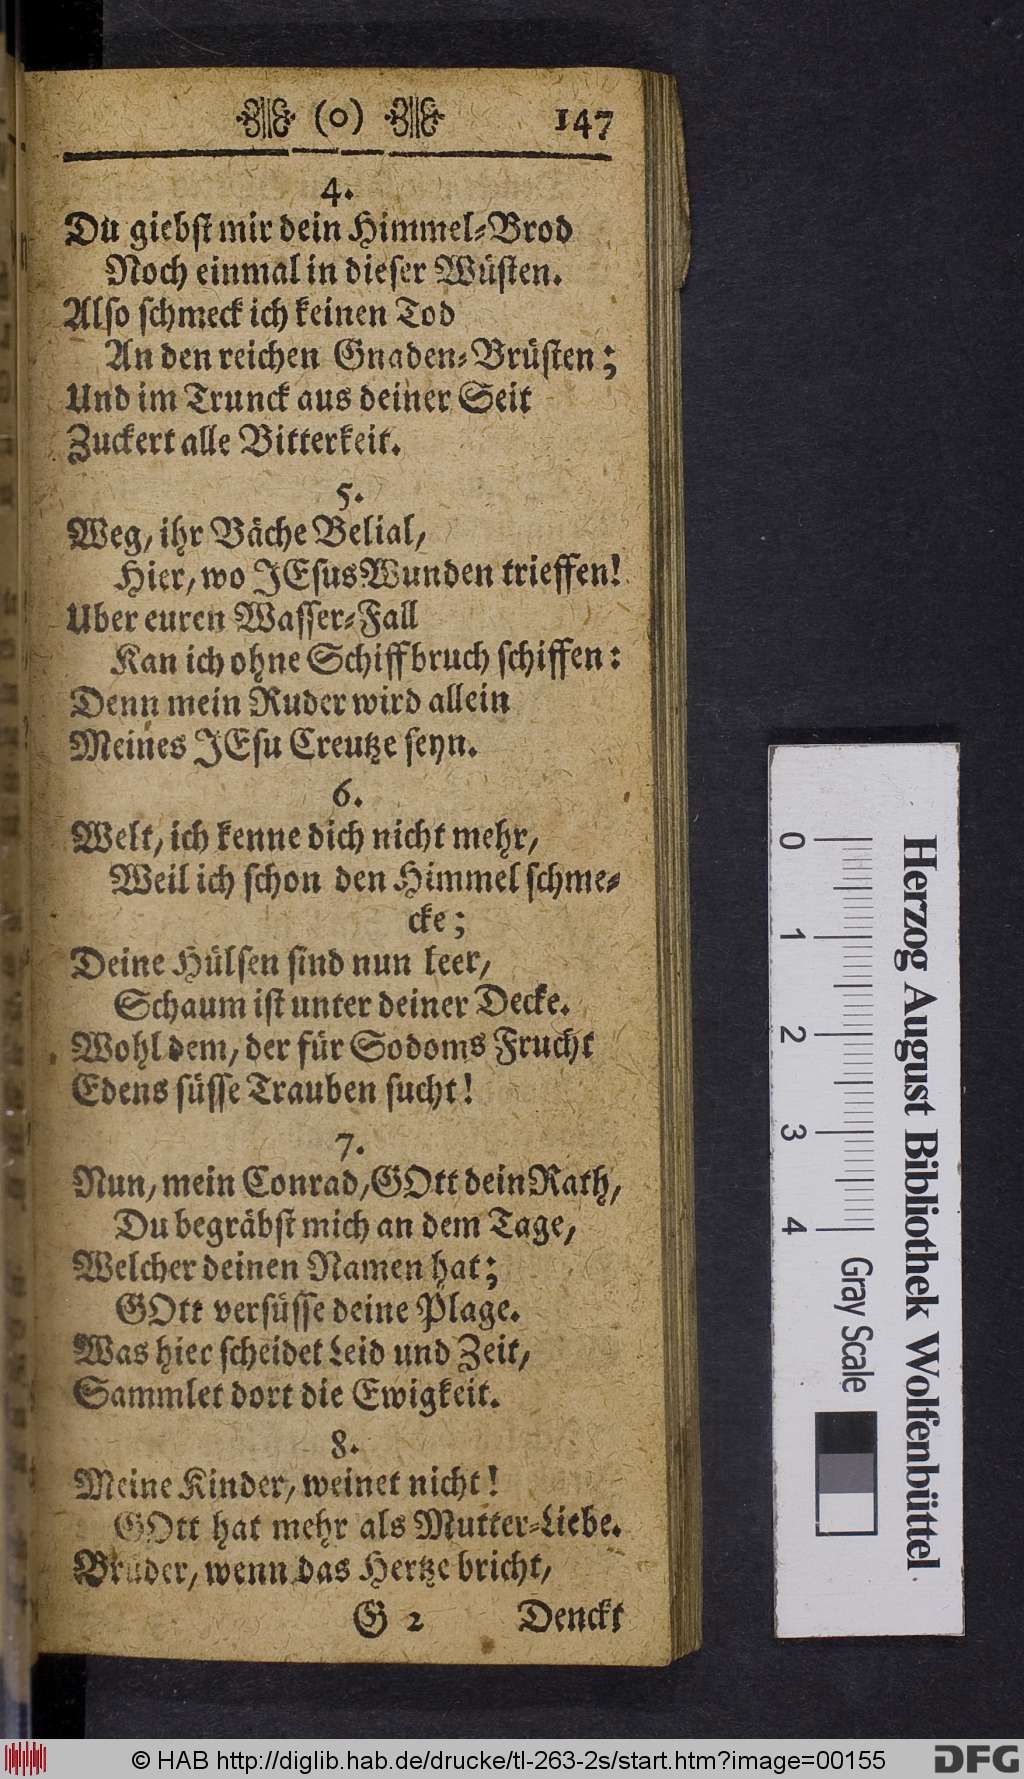 (o) 147
4.
Du giebst mir dein Himmel-Brod
Noch einmal in dieser Wüsten.
Also schmeck ich keinen Tod
An den reichen Gnaden-Brüsten;
Und im Trunck aus deiner Seit
Zuckert alle Bitterkeit.
5.
Weg, ihr Bäche Belial,
Hier, wo JEsus Wunden trieffen!
Uber euren Wasser-Fall
Kan ich ohne Schiffbruch schiffen:
Denn mein Ruder wird allein
Meines JEsu Creutze seyn.
6.
Welt, ich kenne dich nicht mehr,
Weil ich schon den Himmel schme-
cke;
Deine Hülsen sind nun leer,
Schaum ist unter deiner Decke.
Wohl dem, der für Sodoms Frucht
Edens süsse Trauben sucht!
7.
Nun, mein Conrad, GOtt dein Rath,
Du begräbst mich an dem Tage,
Welcher deinen Namen hat;
GOtt versüsse deine Plage.
Was hier scheidet Leid und Zeit,
Sammlet dort die Ewigkeit.
8.
Meine Kinder, weinet nicht!
GOtt hat mehr als Mutter-Liebe.
Brüder, wenn das Hertze bricht,
G 2 Denckt
0 1 2 3 4 Gray Scale
Herzog August Bibliothek Wolfenbüttel
© HAB http://diglib.hab.de/drucke/tl-263-2s/start.htm?image=00155 DFG